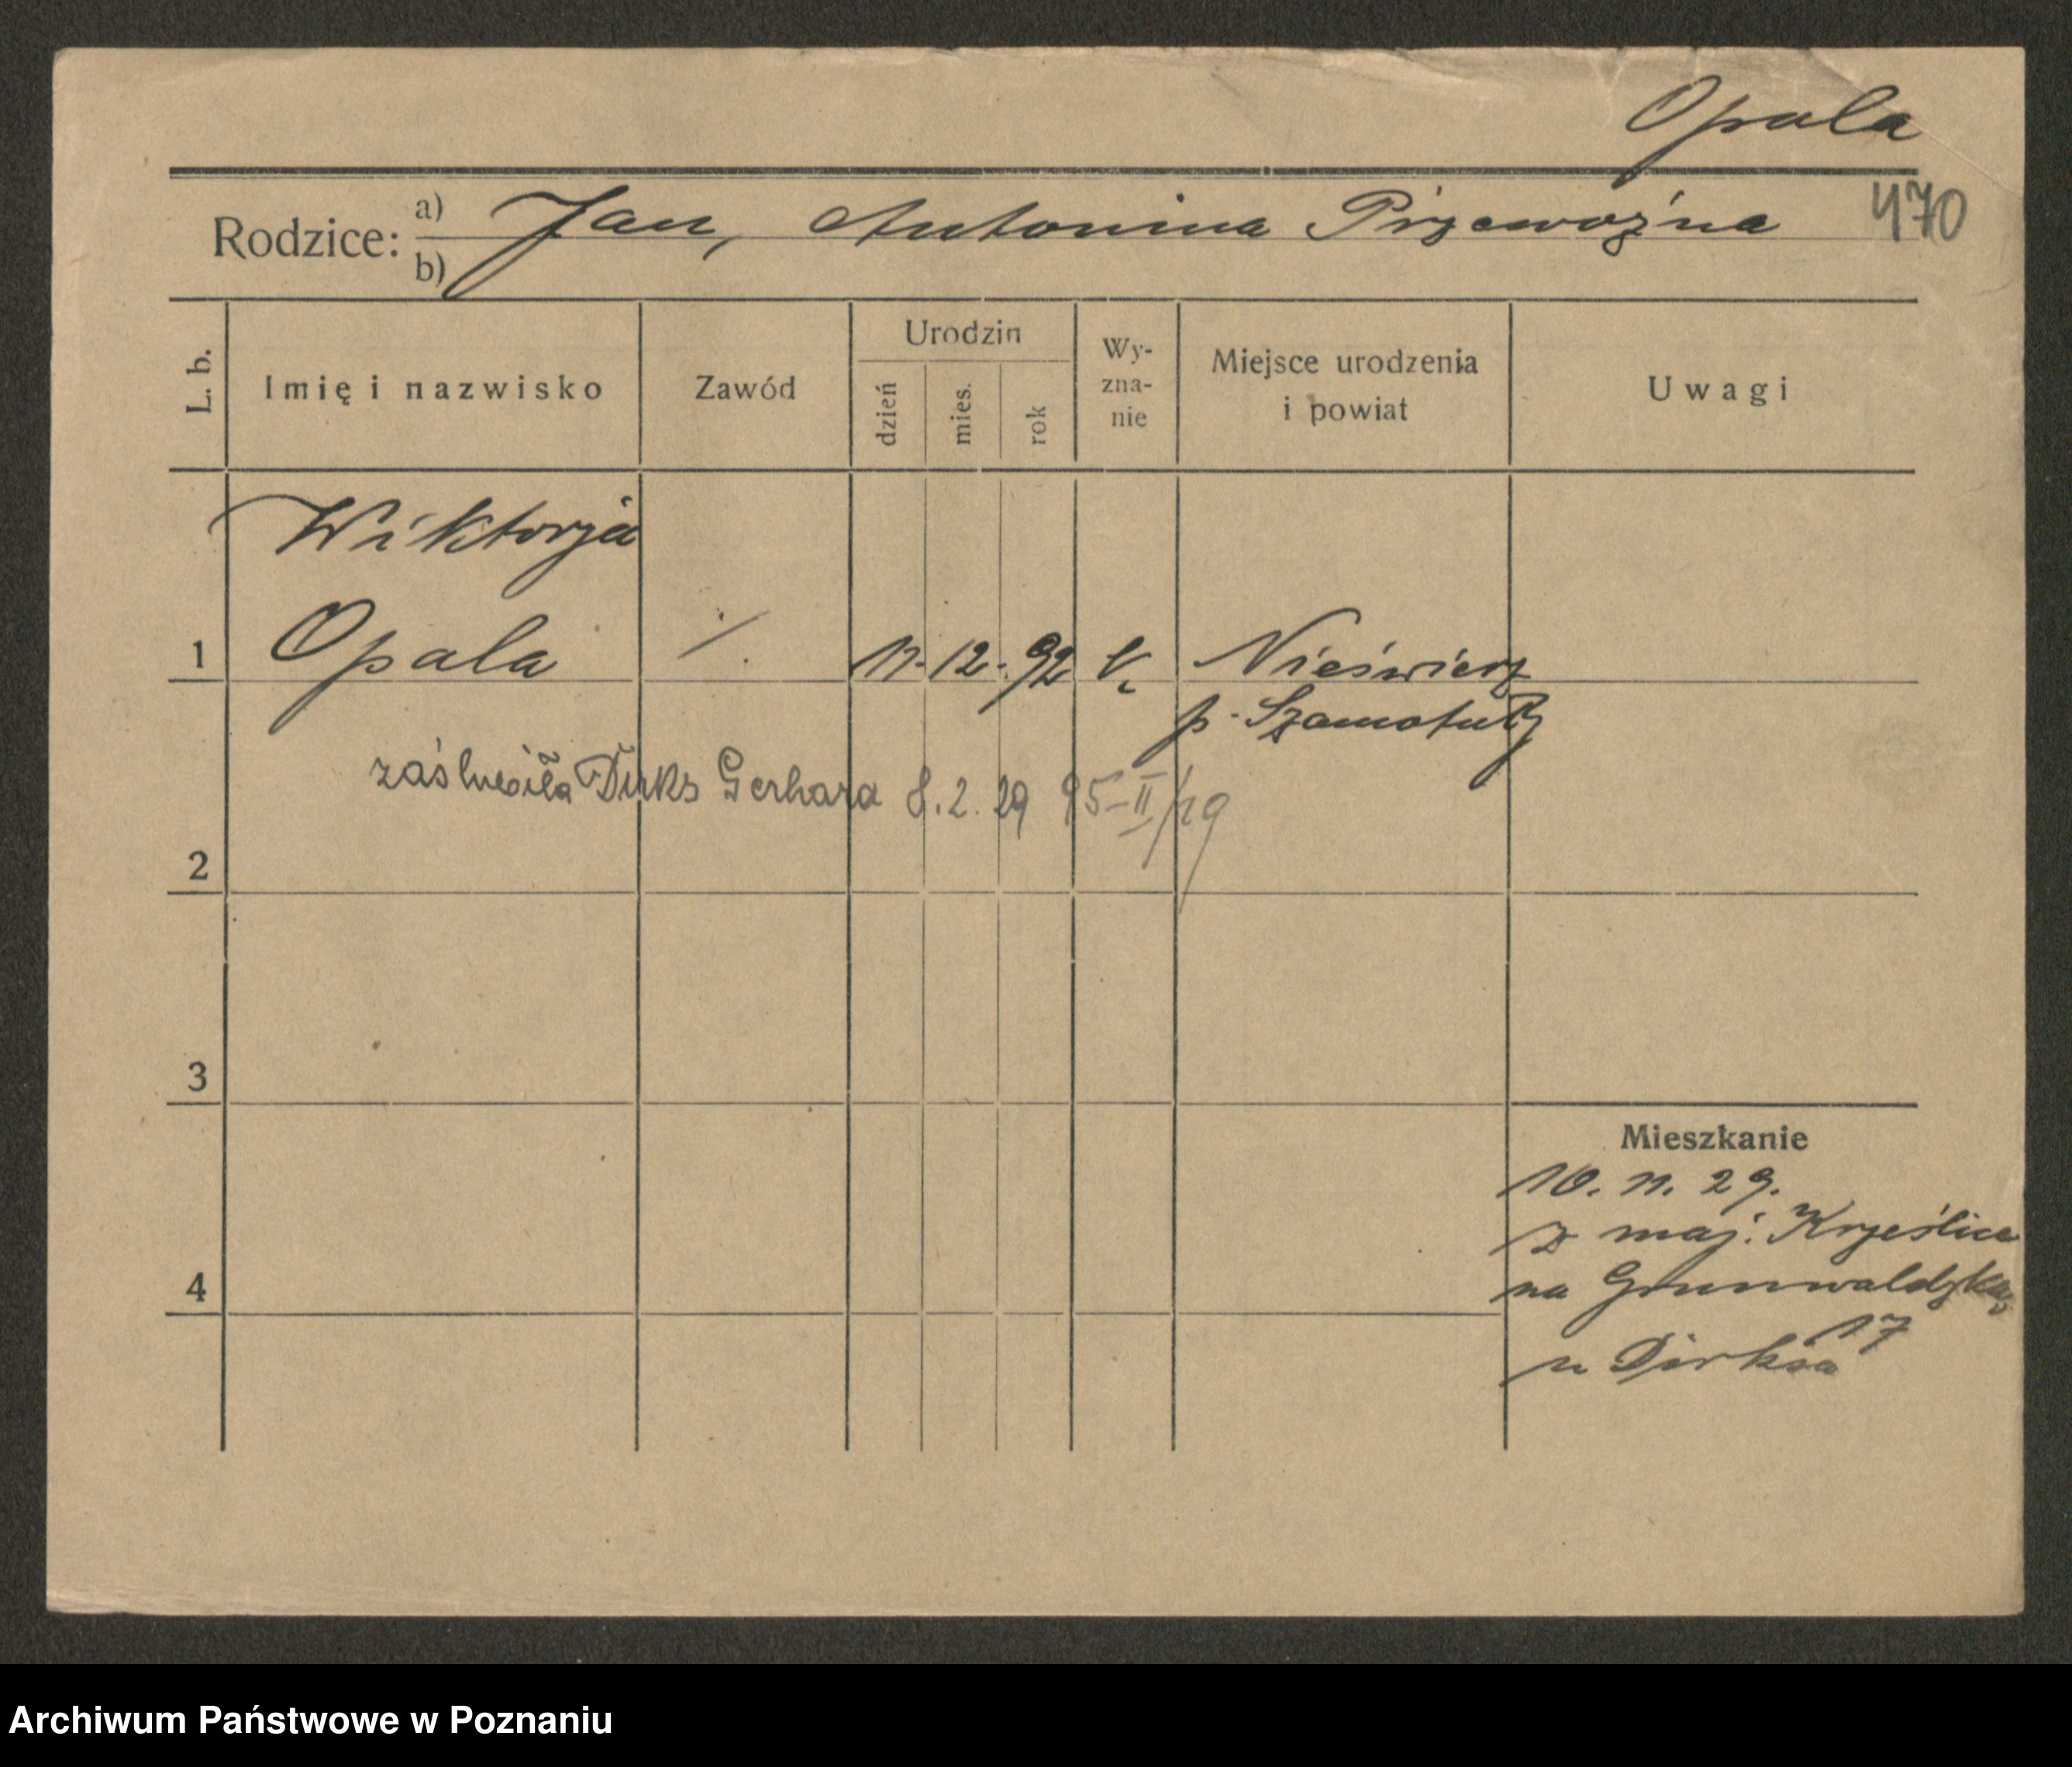 Opala
470
Rodzice: a) Jan, Antonina Przewoźna
b)
L. b.
Imię i nazwisko
Zawód
Urodzin
dzień
mies.
rok
Wy-
zna-
nie
Miejsce urodzenia
i powiat
Uwagi
Wiktorja
1 Opala ·/. 11. 12. 92 k. Nieświerz
p. Szamotuły
zaślubiła Dirks Gerharda 8.2.29 95-II/29
2
3
Mieszkanie
10. 11. 29.
z maj. Krześlice
4 na Grunwaldzką
17
u Dirksa
Archiwum Państwowe w Poznaniu